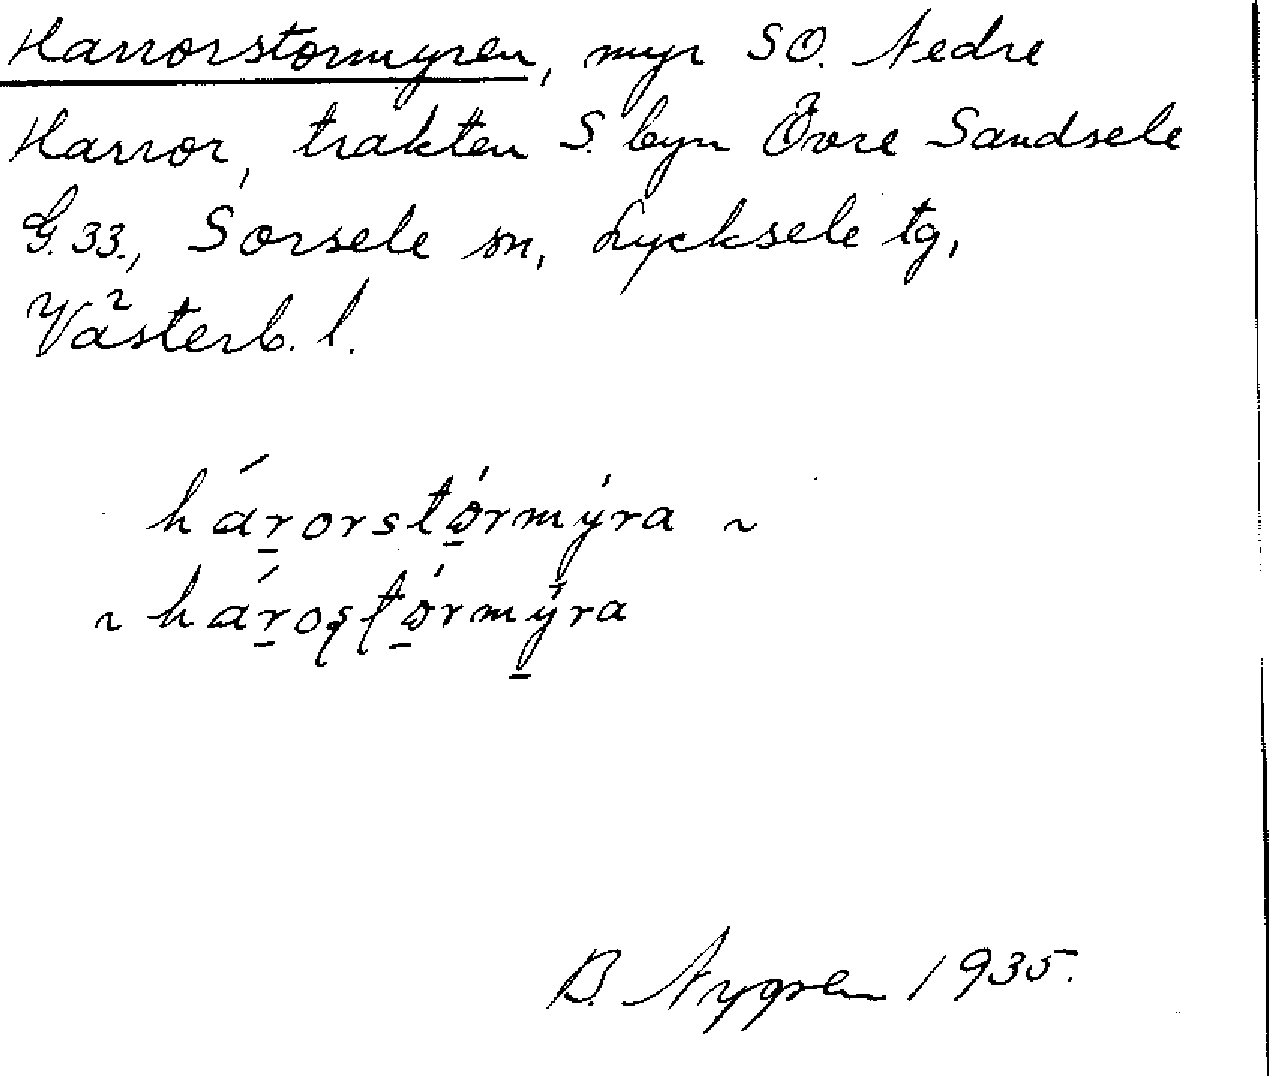 Harrorstormyren, myr SO. Nedre
Harror, trakten S. byn Övre Sandsele
G. 33., Sorsele sn, Lycksele tg,
Västerb. l.
hár̠orstó̠rmýra ~
~ hár̠oʂʈó̠rmý̠ra
B. Nygren 1935.